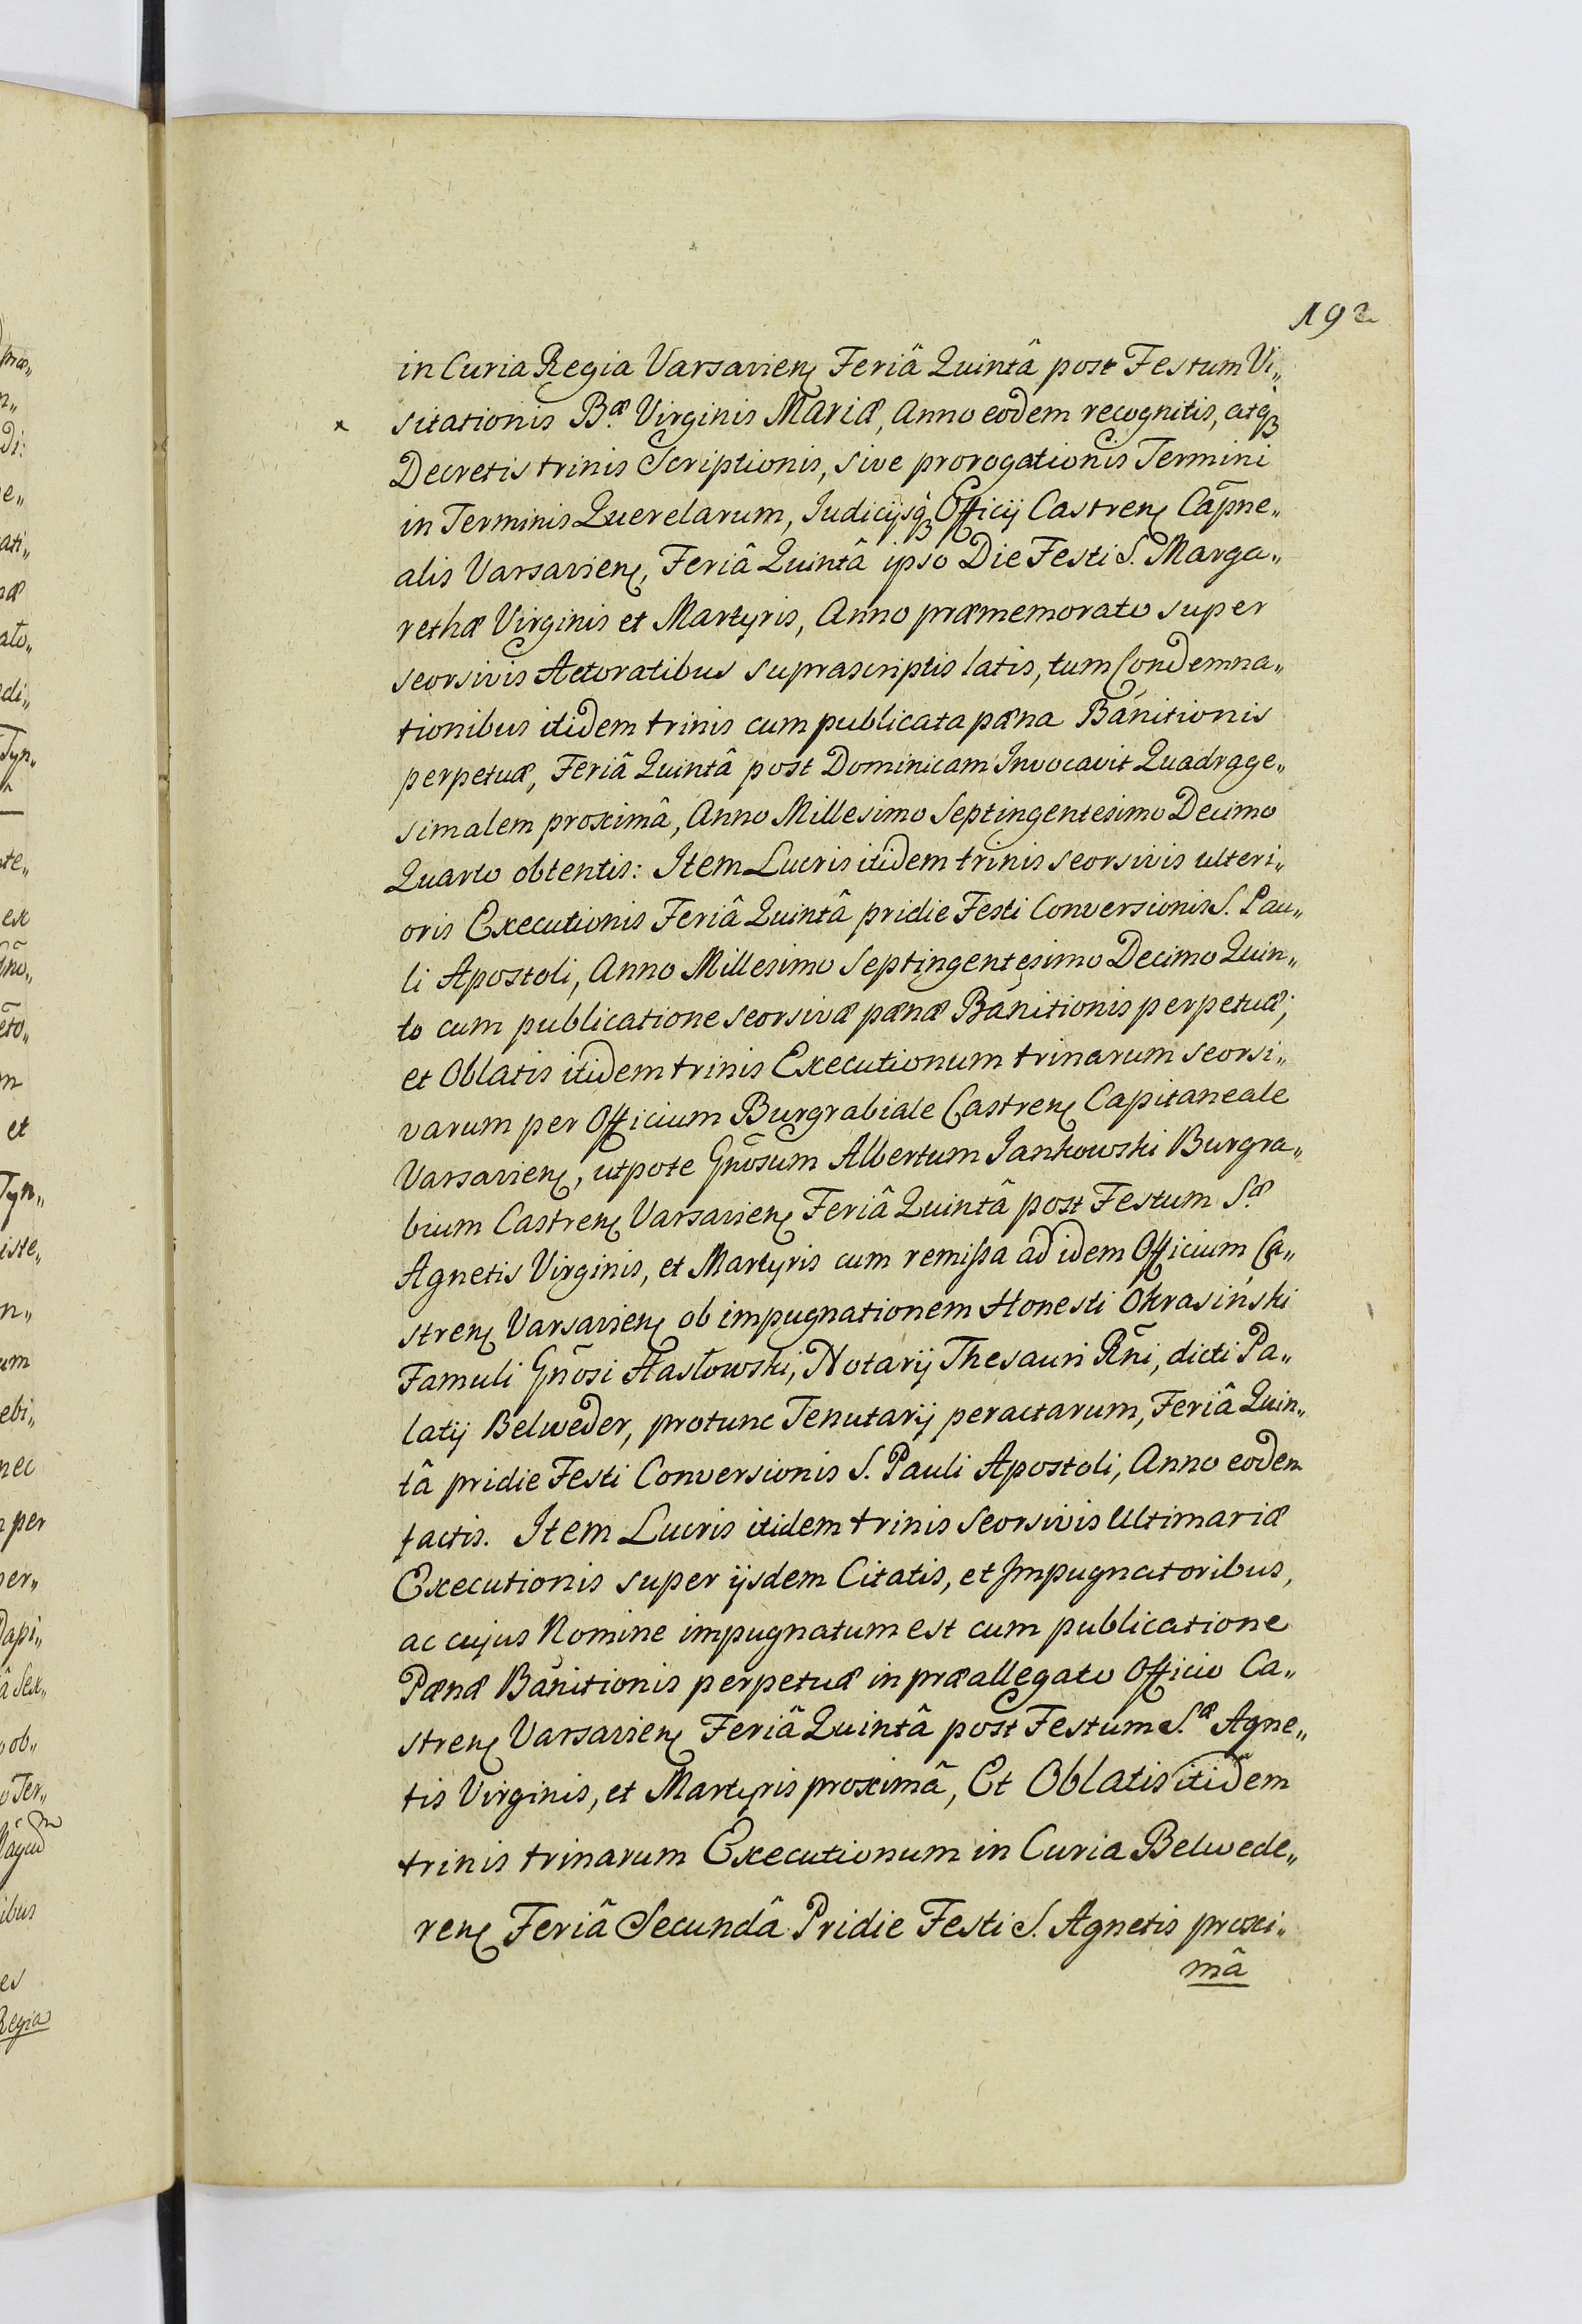 192
in Curia Regia Varsavien Feriâ Quintâ post Festum Vi„
sitationis B.æ Virginis MARIÆ, Anno eodem recognitis, atq3
Decretis trinis Scriptionis, sive prorogationis Termini
in Terminis Querelarum, Iudicijsq3 Officij Castren Cap̄ne„
alis Varsavien, Feriâ Quintâ ipso Die Festi S. Marga„
rethæ Virginis et Martyris, Anno præmemorato super
seorsivis Actoratibus suprascriptis latis, tum Condemna„
tionibus itidem trinis cum publicata pæna Bānitionis
perpetuæ, Feriâ Quintâ post Dominicam Invocavit Quadrage„
simalem proximâ, Anno Millesimo Septingentesimo Decimo
Quarto obtentis: Item Lucris itidem trinis seorsivis ulteri„
oris Executionis Feriâ Quintâ pridie Festi Conversionis S. Pau„
li Apostoli, Anno Millesimo Septingentesimo Decimo Quin„
to cum publicatione seorsivæ pænæ Bānitionis perpetuæ;
et Oblatis itidem trinis Executionum trinarum seorsi„
varum per Officium Burgrabiale Castren Capitaneale
Varsavien, utpote Gn̄osum Albertum Jankowski Burgra„
bium Castren Varsavien Feriâ Quintâ post Festum S.æ
Agnetis Virginis, et Martyris cum remissa ad idem Officium Ca„
stren Varsavien ob impugnationem Honesti Okrasiński
Famuli Gn̄osi Hasłowski, Notarij Thesauri Rn̄i, dicti Pa„
latij Belweder, protunc Tenutarij peractarum, Feriâ Quin„
tâ pridie Festi Conversionis S. Pauli Apostoli, Anno eodem
factis. Item Lucris itidem trinis seorsivis Ultimariæ
Executionis super ijsdem Citatis, et Impugnatoribus,
ac cujus Nomine impugnatum est cum publicatione
Pænæ Bānitionis perpetuæ in præallegato Officio Ca„
stren Varsavien Feriâ Quintâ post Festum S.æ Agne„
tis Virginis, et Martyris proximâ, Et Oblatis itidem
trinis trinarum Executionum in Curia Belwede„
ren Feriâ Secundâ Pridie Festi S. Agnetis proxi„
mâ